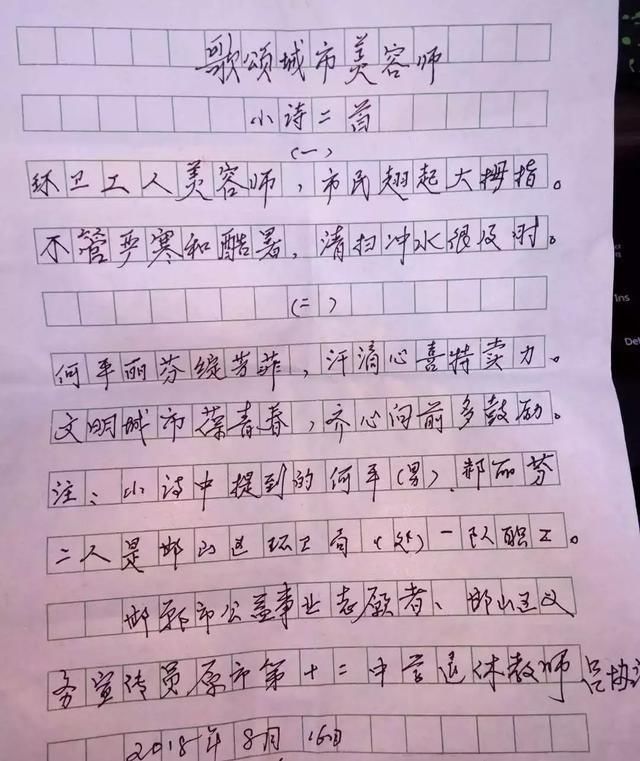 歌颂城市美容师
小诗二首
(一)
环卫工人美容师，市民翘起大拇指。
不管严寒和酷暑，清扫冲水很及时。
(二)
何平丽芬绽芳菲，汗滴心喜特卖力。
文明城市葆青春，齐心向前多鼓劲。
注：小诗中提到的何平(男)、郝丽芬
二人是邯山区环卫局(处)一队职工。
邯郸市公益事业志愿者、邯山区义
务宣传员原市第十二中学退休教师吕协
2018年8月16日
Ins
Del